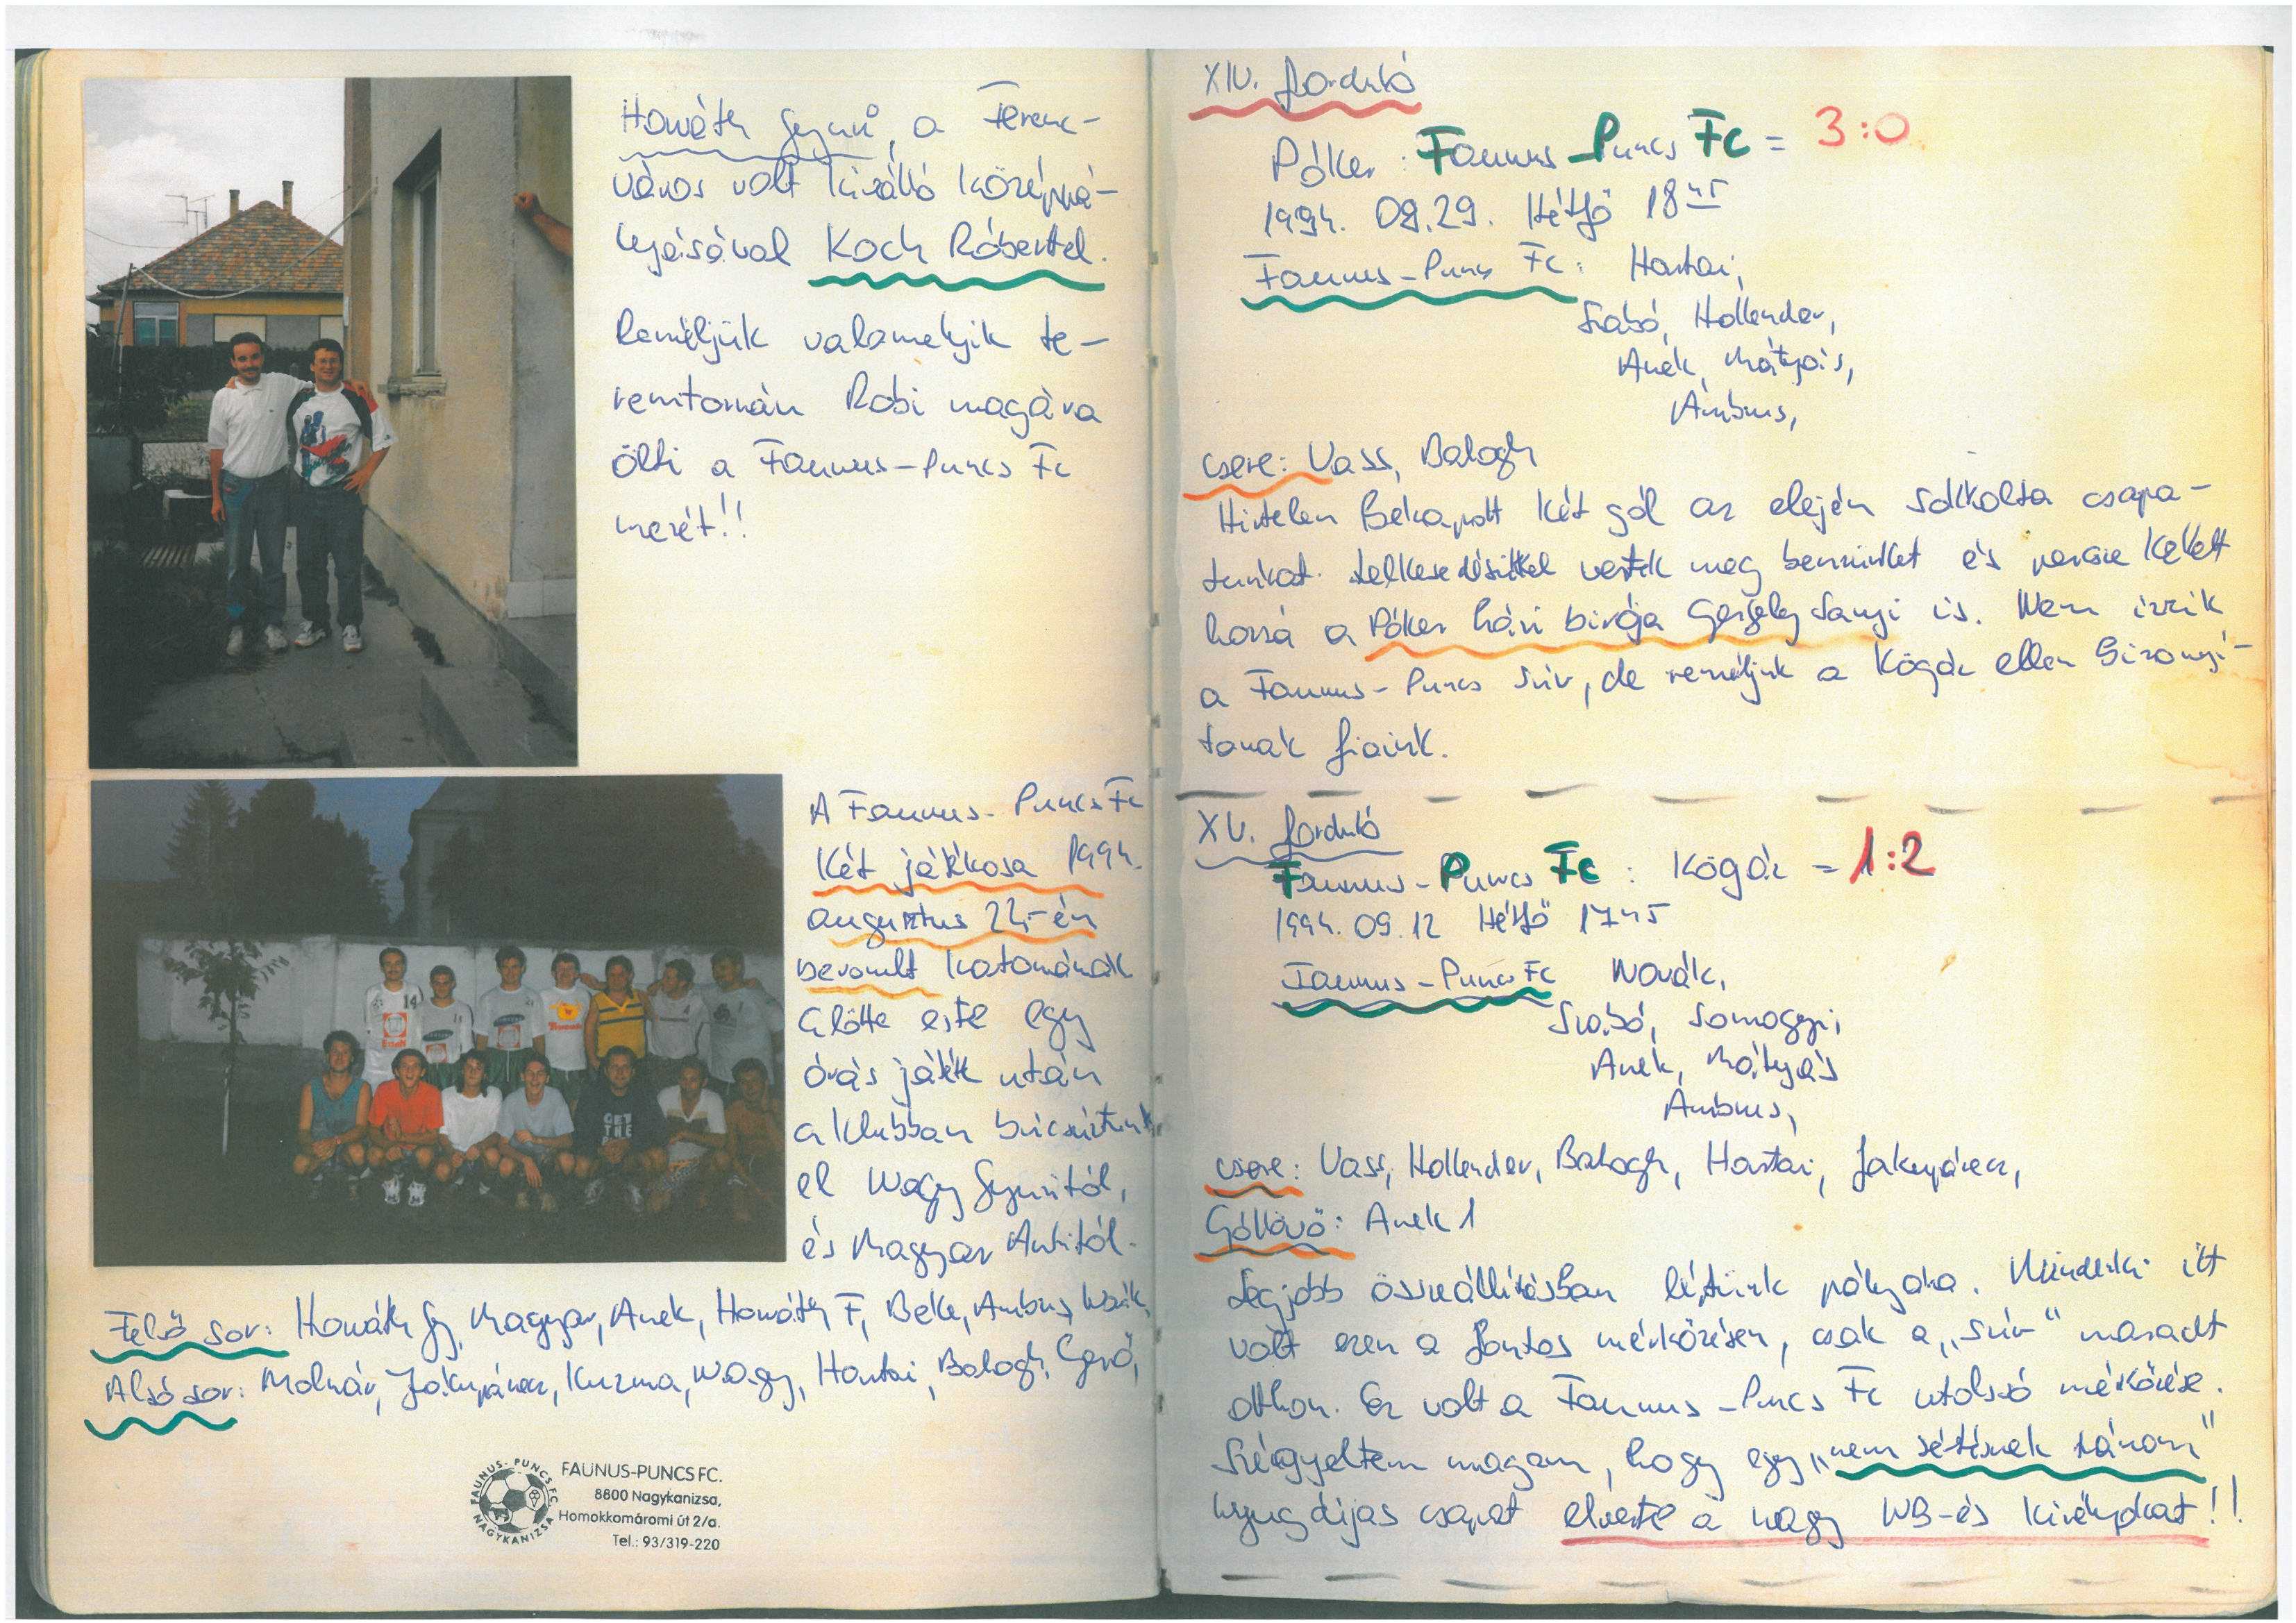 Horváth Gyuri, a Ferenc-
város volt kiváló középpá-
lyásával Koch Róberttel.
Reméljük valamelyik te-
remtornán Robi magára
ölti a Faunus-Puncs Fc
mezét!!
A Faunus-Puncs Fc
két játékosa 1994.
augusztus 22-én
bevonult katonának
előtte este egy
órás játék után
a klubban búcsúztunk
el Nagy Gyuritól,
és Magyar Antitól.
Felső sor: Horváth Gy, Magyar, Anek, Horváth F, Beke, Ambrus, Novák,
Alsó sor: Molnár, Jakupánecz, Kuzma, Nagy, Hartai, Balogh, Gerő,
FAUNUS-PUNCS FC NAGYKANIZSA
FAUNUS-PUNCS FC.
8800 Nagykanizsa,
Homokkomáromi út 2/a.
Tel.: 93/319-220
14
GET
THE
XIV. forduló
Póker : Faunus-Puncs Fc = 3:0
1994. 08.29. Hétfő 18 45
Faunus-Puncs Fc: Hartai,
Szabó, Hollender,
Anek, Mátyás,
Ambrus,
csere: Vass, Balogh
Hirtelen bekapott két gól az elején sokkolta csapa-
tunkat. Lelkesedésükkel vertek meg bennünket és persze kellett
hozzá a Póker házi bírója Gergely Sanyi is. Nem izzik
a Faunus-Puncs szív, de reméljük a Kögáz ellen bizonyí-
tanak fiaink.
XV. forduló
Faunus-Puncs Fc : Kögáz = 1:2
1994. 09.12 Hétfő 17 45
Faunus-Puncs Fc Novák,
Szabó, Somogyi,
Anek, Mátyás
Ambrus,
csere: Vass, Hollender, Balogh, Hartai, Jakupánecz,
Góllövő: Anek 1
Legjobb összeállításban léptünk pályára. Mindenki itt
volt ezen a fontos mérkőzésen, csak a „szív" maradt
otthon. Ez volt a Faunus-Puncs Fc utolsó mérkőzése.
Szégyeltem magam, hogy egy „nem sértésnek szánom"
nyugdíjas csapat elverte a nagy NB-és királyokat!!